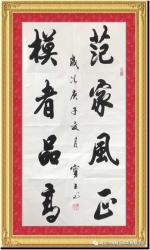 范家風正
模者品高
歲次庚子夏月